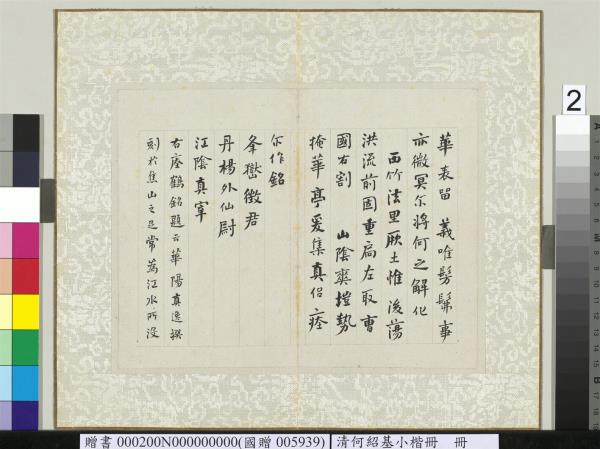 華表留 義唯髣髴事
亦微冥尓將何之解化
西竹法里厥土惟 後蕩
洪流前固重扃左取曹
國右割 山陰爽塏勢
掩華亭爰集真侣瘞
尔作銘
夅嶽徵君
丹楊外仙尉
江陰真宰
右瘞鶴銘題云華陽真逸撰
刻於焦山之足常為江水所没
2
贈書 000200N000000000(國贈 005939)
清何紹基小楷冊 冊